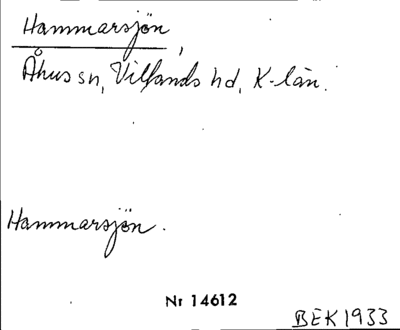 Hammarsjön,
Åhus sn, Villands hd, K-län.
Hammarsjön.
Nr 14612
BEK 1933